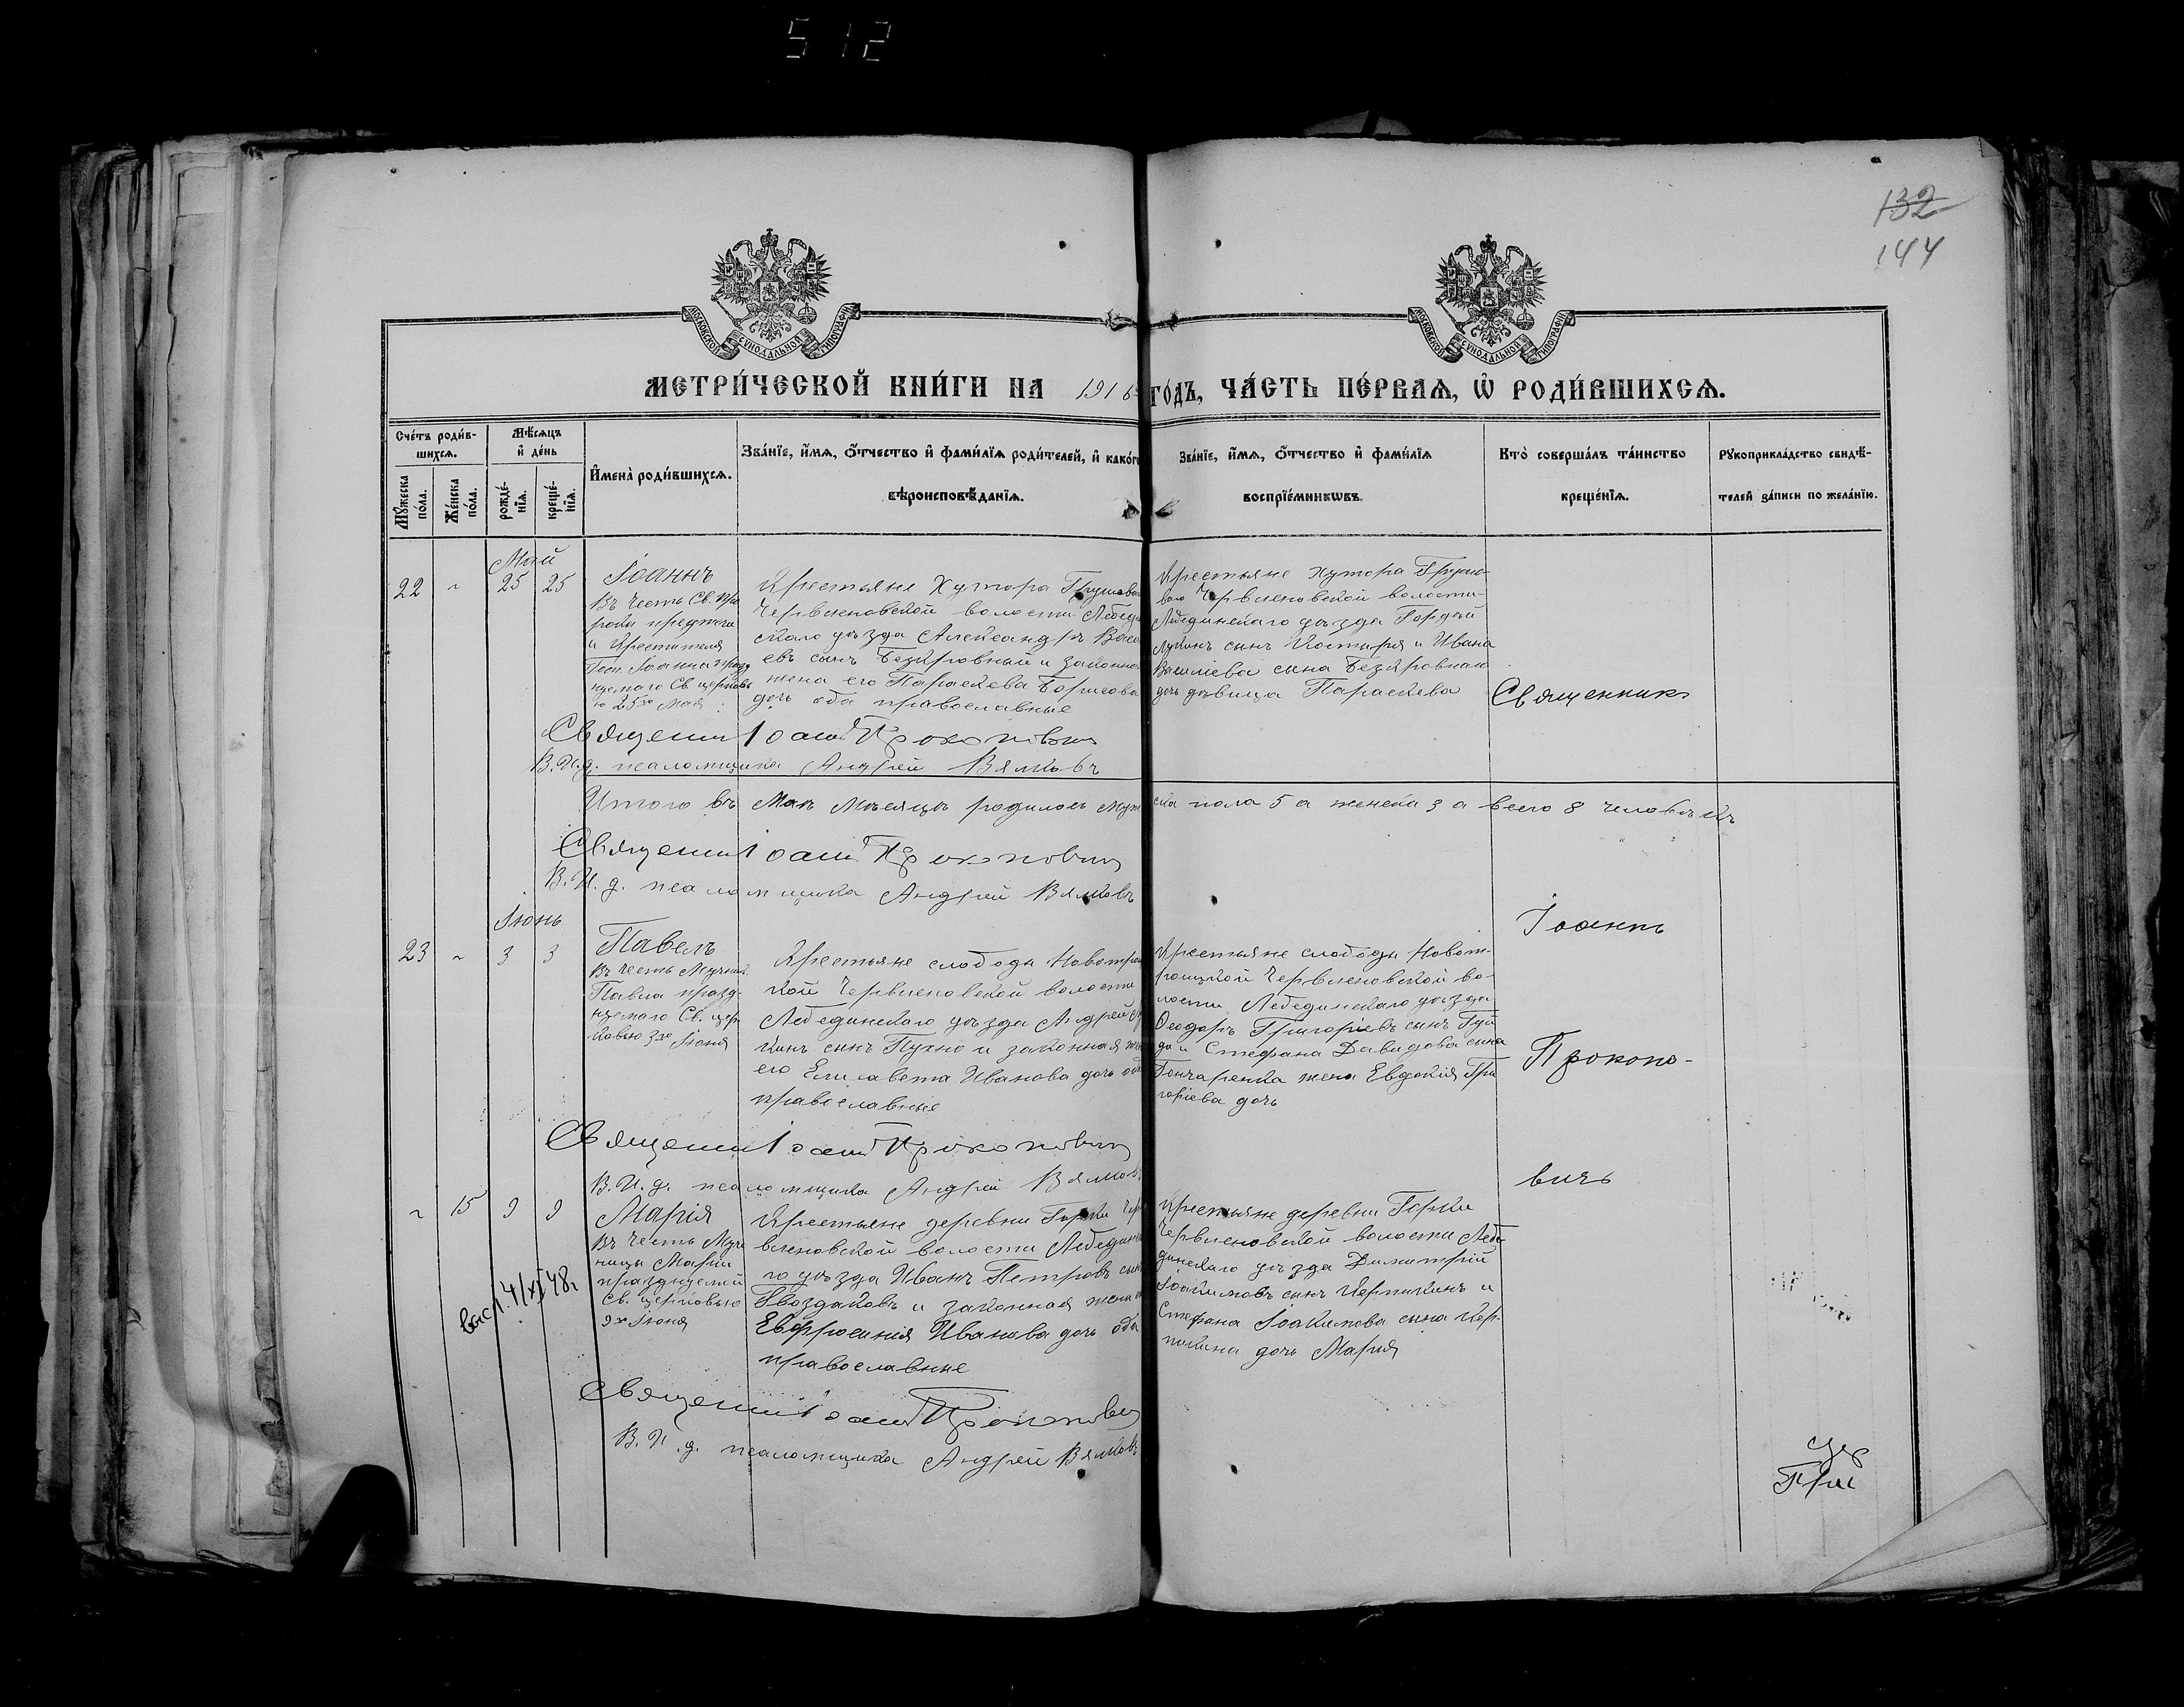 512
132
144
МОСКОВСКОЙ СѴНОДАЛЬНОЙ ТИПОГРАФІИ
МОСКОВСКОЙ СѴНОДАЛЬНОЙ ТИПОГРАФІИ
МЕТРИ́ЧЕСКОЙ КНИ́ГИ НА 1916 ГО́ДЪ, ЧА́СТЬ ПЕ́РВАѦ, Ѡ҆ РОДИ́ВШИХСѦ.
Сче́тъ роди́в-
шихсѧ.
Мѣ́сѧцъ
и҆ де́нь
Мꙋ́жеска
по́ла.
Же́нска
по́ла.
рожде́-
нїѧ.
креще́-
нїѧ.
И҆мена̀ роди́вшихсѧ.
Зва́нїе, и҆́мѧ, ѻ҆́тчество и҆ фами́лїѧ роди́телей, и҆ како́гѡ
вѣроисповѣ́данїѧ.
Зва́нїе, и҆́мѧ, ѻ҆́тчество и҆ фами́лїѧ
воспрїе́мникѡвъ.
Кто̀ соверша́лъ та́инство
креще́нїѧ.
Рꙋкоприкла́дство свидѣ́-
телей за́писи по жела́нїю.
Май
22 ~ 25 25
Іоаннъ
Въ честь Св. Про
рока предтечи
и Крестителя
Госп. Іоанна празд
нуемаго Св. церковь
ю 25го Мая
Крестьяне Хутора Грушева
Червленовской волости Лебеди
скаго уѣзда Александръ Васи
евъ сынъ Безкровный и законна
жена его Параскева Борисова
дочь оба православные
Крестьяне хутора Грушо-
ваго Червленовской волости
Лебединскаго уѣзда Гордѣй
Лукинъ сынъ Костыря и Ивана
Василіева сына Безкровнаго
дочь дѣвица Параскева
Священникъ
Священникъ Іоаннъ Прокоповичъ
В. И. д. псаломщика Андрей Вялковъ
Итого въ Маѣ Мѣсяцѣ родилось муж
ска пола 5 а женска 3 а всего 8 человѣкъ
Священникъ Іоаннъ Прокоповичъ
В. И. д. псаломщика Андрей Вялковъ
Іюнь
23 ~ 3 3
Павелъ
Въ честь Мученик.
Павла празд-
нуемаго Св. цер-
ковью 3го Іюня
Крестьяне слободы Новотрои
кой Червленовской волости
Лебединскаго уѣзда Андрей
кинъ сынъ Пухно и законная же
его Елисавета Иванова дочь оба
православные
Крестьяне слободы Новот-
роицкой Червленовской во-
лости Лебединскаго уѣзда
Ѳеодоръ Григоріевъ сынъ Гуй
да и Стефана Давидова сына
Гончаренка жена Евдокія Гри
горіева дочь
Іоаннъ
Прокопо-
вичъ
Священникъ Іоаннъ Прокоповичъ
В. И. д. псаломщика Андрей Вялковъ
~ 15 9 9
Марія
Въ честь Муче
ницы Маріи
празднуемой
Св. церковью
9го Іюня
высл. 4/XI 48г
Крестьяне деревни Горки Чер
вленовской волости Лебединск
го уѣзда Иванъ Петровъ сын
Гвоздаковъ и законная жена
Евфросинія Иванова дочь оба
православные
Крестьяне деревни Горки
Червленовской волости Лебе
динскаго уѣзда Димитрій
Іоакимовъ сынъ Черпакинъ и
Стефана Іоакимова сына Чер-
пакина дочь Марія
Священникъ Іоаннъ Прокоповичъ
В. И. д. псаломщика Андрей Вялковъ